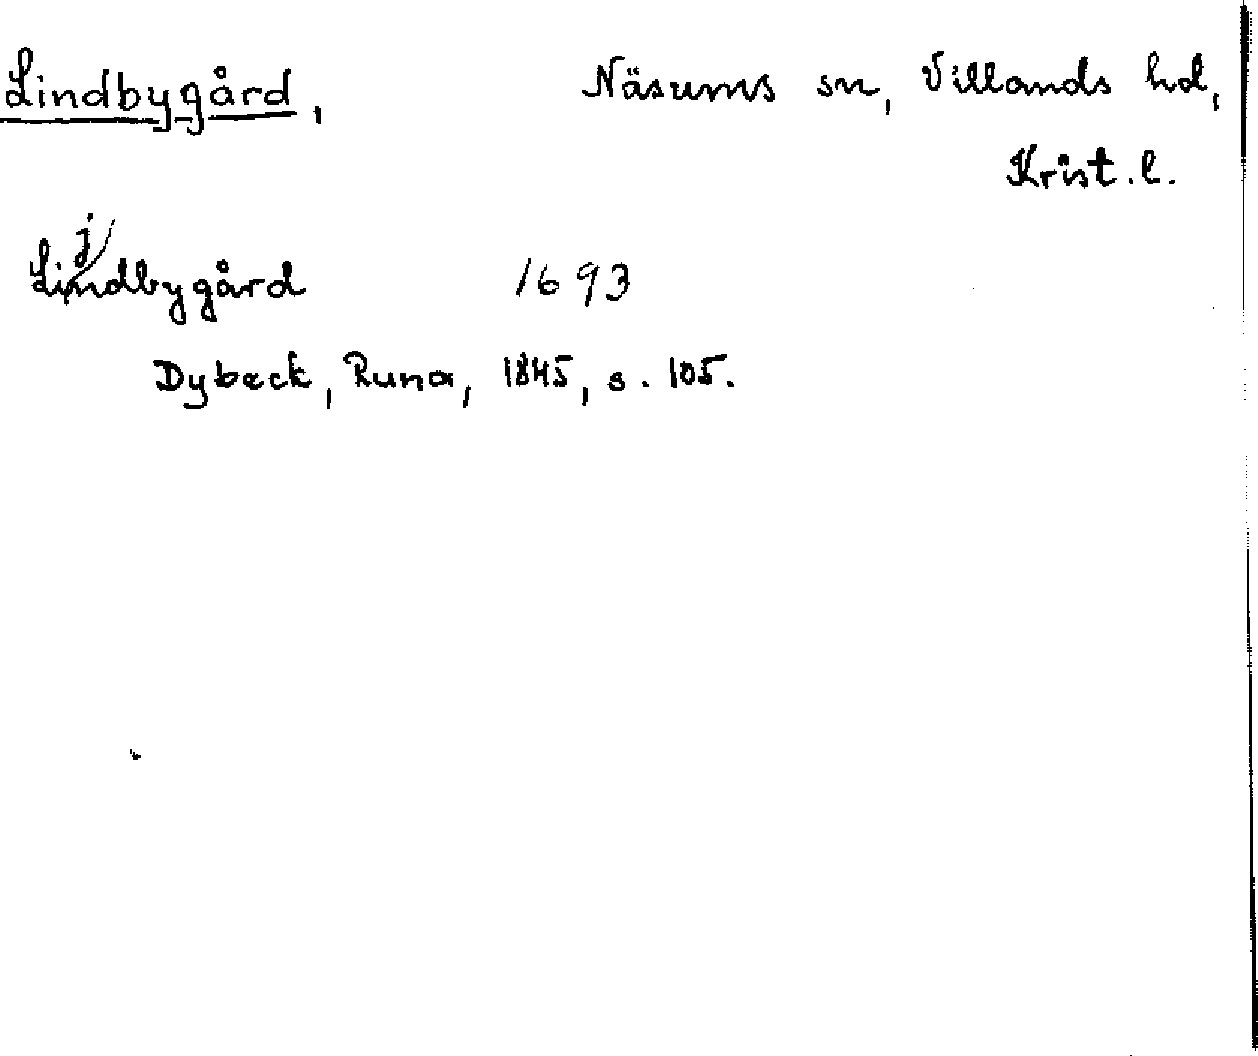 Lindbygård, Näsums sn, Villands hd,
Krist. l.
Lijndbygård 1693
Dybeck, Runa, 1845, s. 105.